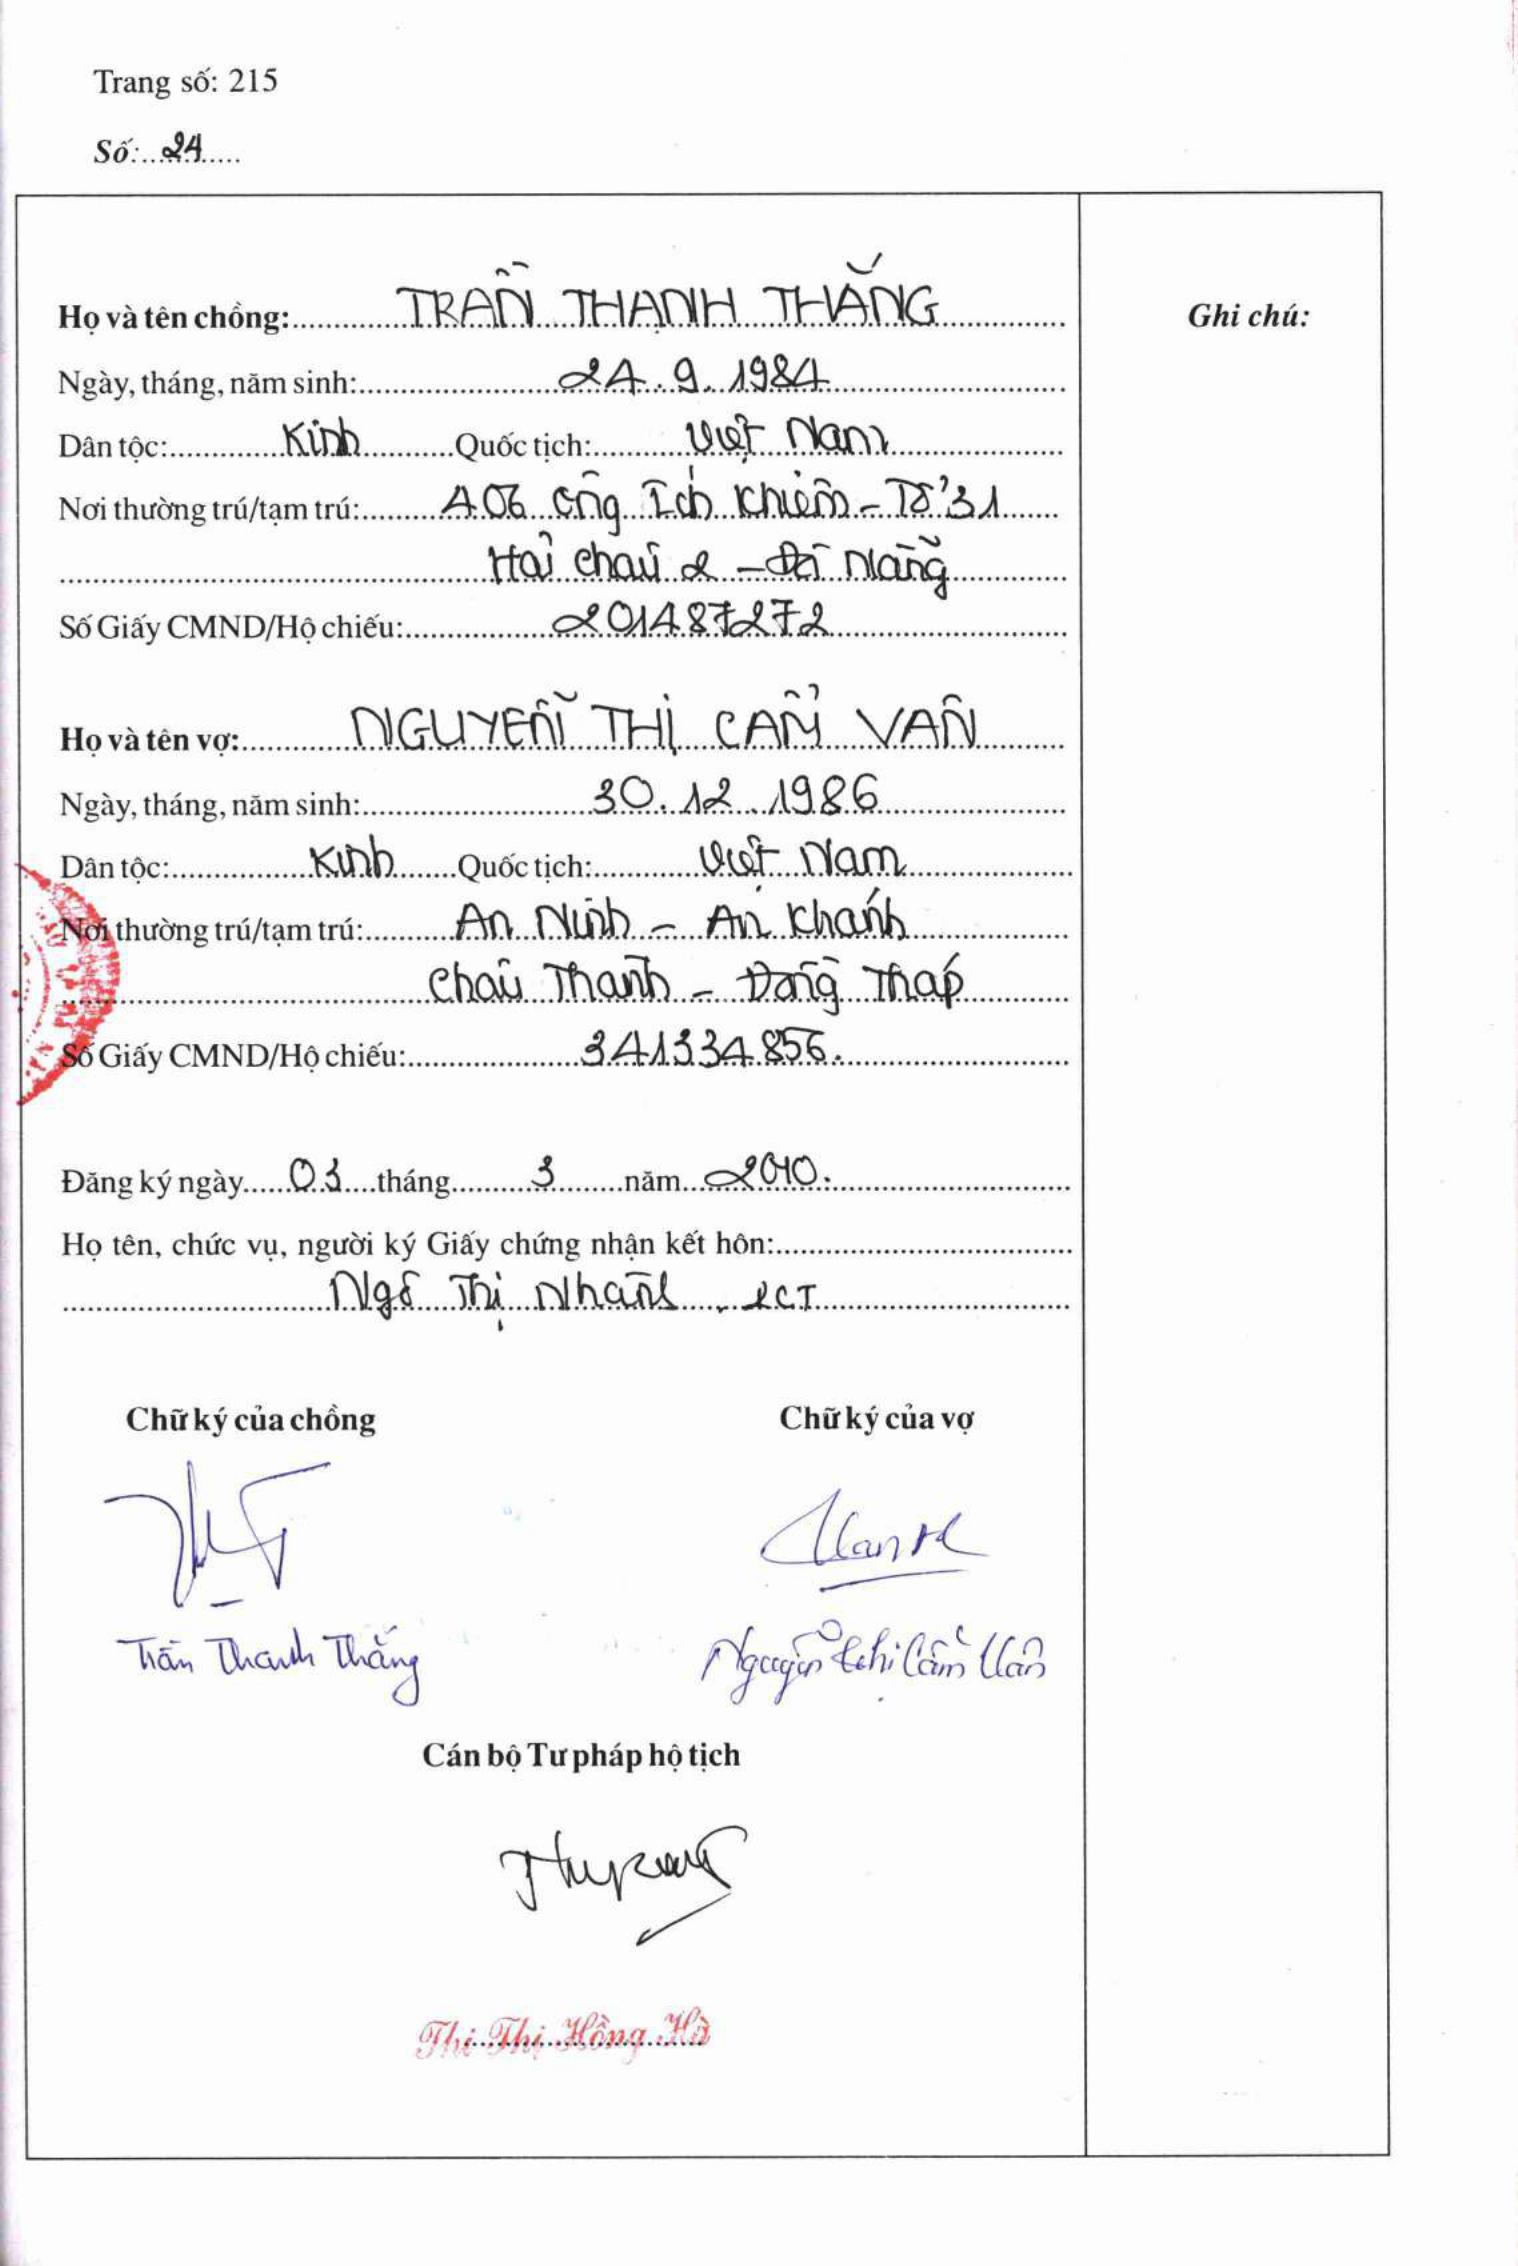 Trang số: 215
Số: 24
Họ và tên chồng: TRẦN THANH THẮNG
Ghi chú:
Ngày, tháng, năm sinh: 24.9.1984
Dân tộc: Kinh Quốc tịch: Việt Nam
Nơi thường trú/tạm trú: 406 Ông Ích Khiêm - Tổ 31
Hải Châu 2 - Đà Nẵng
Số Giấy CMND/Hộ chiếu: 201487272
Họ và tên vợ: NGUYỄN THỊ CẨM VÂN
Ngày, tháng, năm sinh: 30.12.1986
Dân tộc: Kinh Quốc tịch: Việt Nam
Nơi thường trú/tạm trú: An Ninh - An Khánh
Châu Thành - Đồng Tháp
Số Giấy CMND/Hộ chiếu: 341334856.
Đăng ký ngày 03 tháng 3 năm 2010.
Họ tên, chức vụ, người ký Giấy chứng nhận kết hôn:
Ngô Thị
Chữ ký của chồng Chữ ký của vợ
Trần Thanh Thắng Nguyễn Thị Cẩm Vân
Cán bộ Tư pháp hộ tịch
Thi Thị Hồng Hà